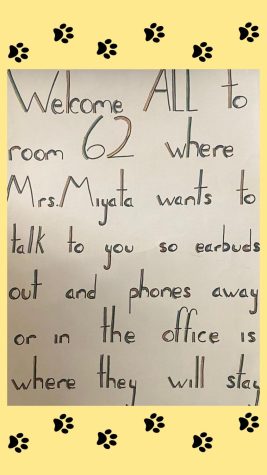 Welcome ALL to
room 62 where
Mrs. Miyata wants to
talk to you so earbuds
out and phones away
or in the office is
where they will stay